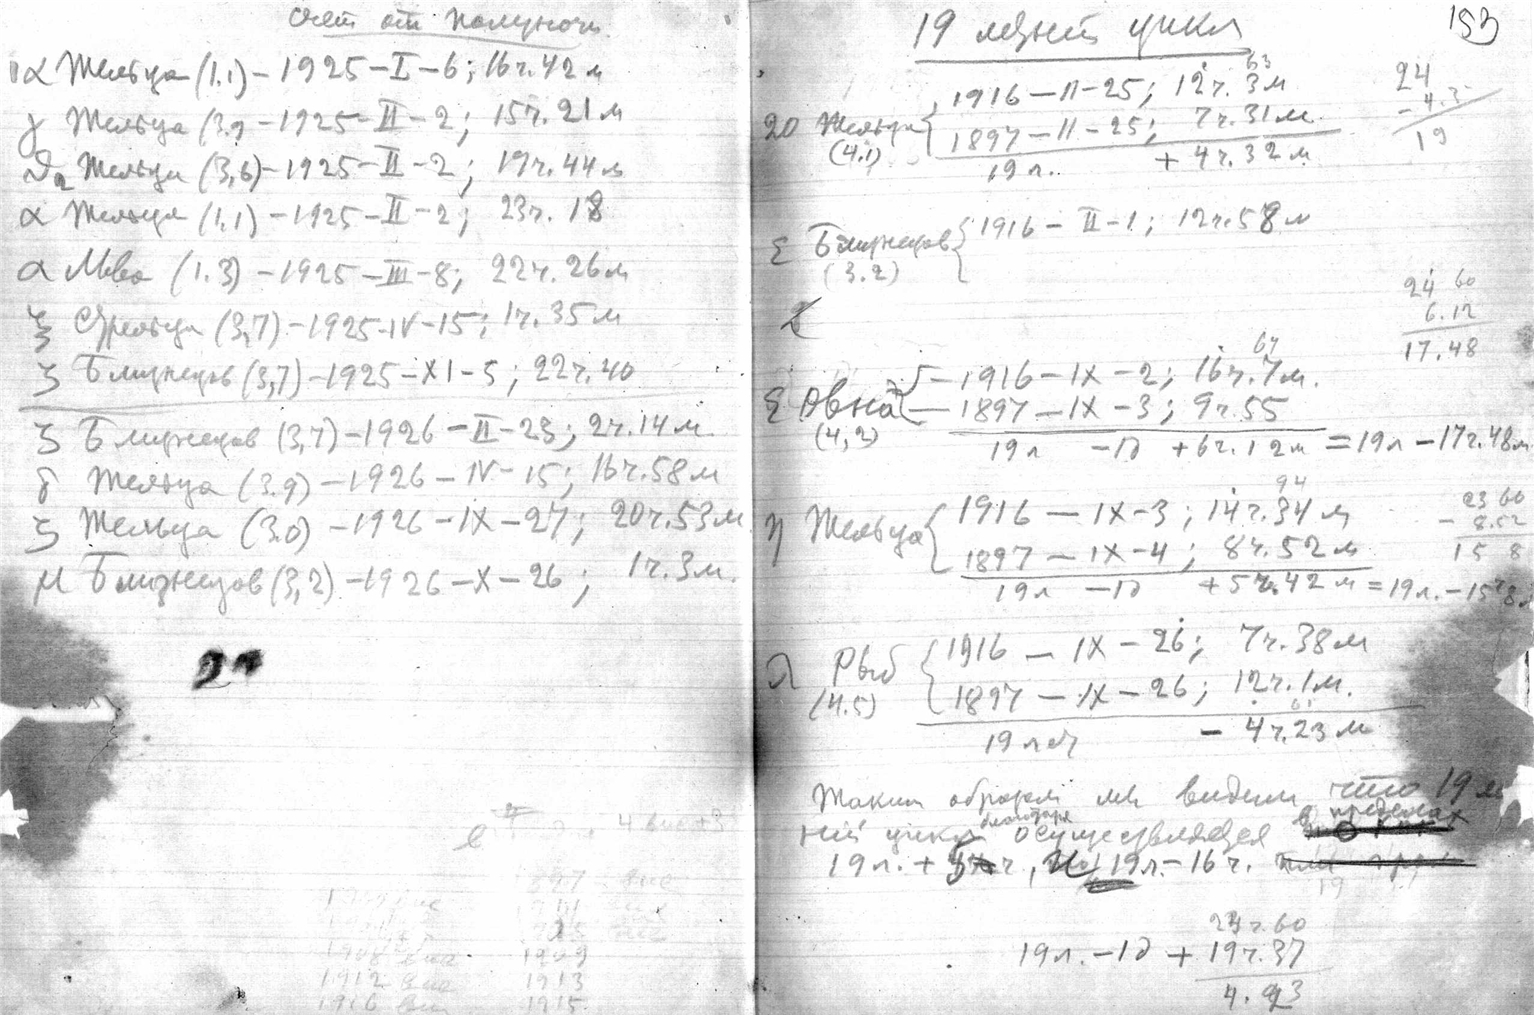 Счет от полуночи
α Тельца (1.1) – 1925 – I – 6; 16ч. 42 м
γ Тельца (3.9 – 1925 – II – 2; 15ч. 21 м
ϑ₂ Тельца (3,6) – 1925 – II – 2; 19ч. 44 м
α Тельца (1,1) – 1925 – II – 2; 23ч. 18
α Льва (1.3) – 1925 – III – 8; 22ч. 26 м
ξ Стрельца (3,7) – 1925 – IV – 15; 1ч. 35 м
ζ Близнецов (3,7) – 1925 – XI – 5; 22ч. 40
ζ Близнецов (3,7) – 1926 – II – 23; 2ч. 14 м
γ Тельца (3.9) – 1926 – IV – 15; 16ч. 58 м
ζ Тельца (3.0) – 1926 – IX – 27; 20ч. 53 м
μ Близнецов (3,2) – 1926 – X – 26; 1ч. 3 м.
1908 1909
1912 1913
1916 1915
153
19 летний цикл
63
1916 – II – 25; 12ч. 3 м
20 Тельца
(4.1)
1897 – II – 25; 7ч. 31 м
19 л. + 4ч. 32 м
24
19
ε Близнецов { 1916 – II – 1; 12ч. 58 м
(3.2)
24 60
6.12
17.48
67
ε Овна – 1916 – IX – 2; 16ч. 7 м.
(4,2) – 1897 – IX – 3; 9ч. 55
19 л – 1д + 6ч. 12 м = 19 л – 17ч. 48 м
94
1916 – IX – 3; 14ч. 34 м
η Тельца {
1897 – IX – 4; 8ч. 52 м
19 л – 1д + 5ч. 42 м = 19 л. – 15ч 8 м
23 60
– 8.52
15 8
λ Рыб { 1916 – IX – 26; 7ч. 38 м
(4.5) 1897 – IX – 26; 12ч. 1 м.
61
19 лет – 4ч. 23 м
Таким образом мы видим что 19 лет
ний цикл осуществляется в пределах
19 л. + ч, и 19 л – 16 ч.
19
24ч. 60
19 л. – 1д + 19ч. 37
4. 23